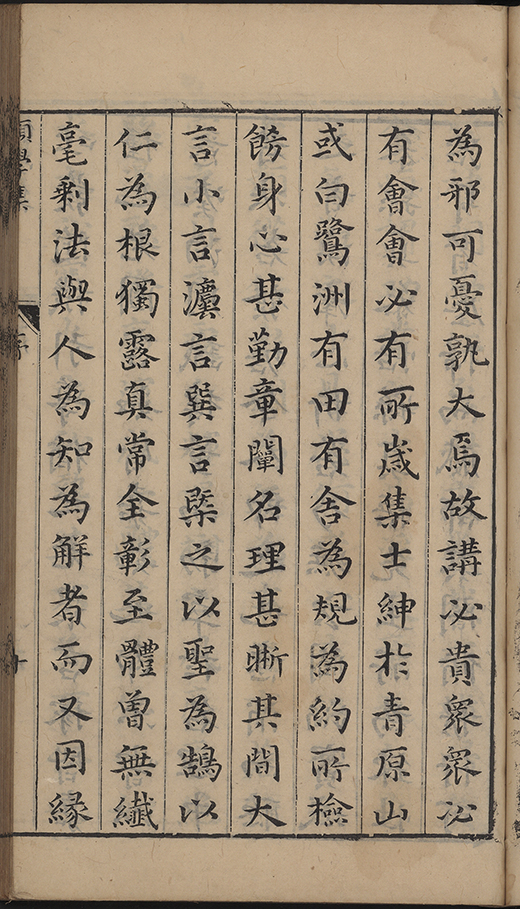 為邪可憂孰大焉故講必貴衆衆必
有會會必有所歲集士紳於青原山
或白鷺洲有田有舍為規為約所檢
餝身心甚勤章闡名理甚晰其間大
言小言瀆言巽言槩之以聖為鵠以
仁為根獨露真常全彰至體曾無纖
毫剩法與人為知為解者而又因緣
願學集 序 十